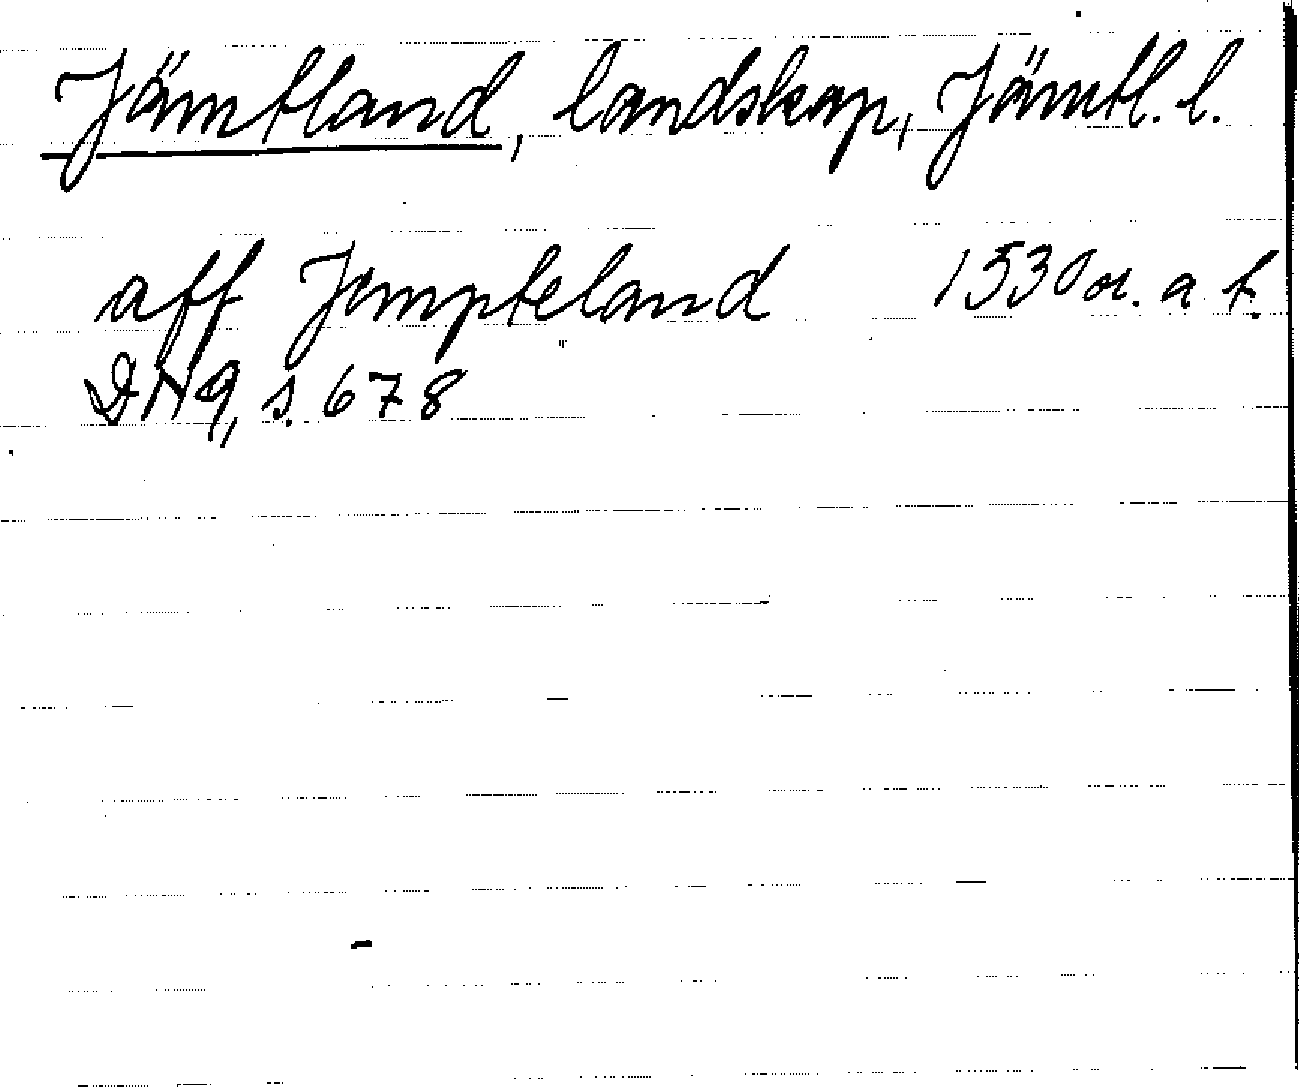 Jämtland, landskap, Jämtl. l.
aff Jempteland 1530 or. a t.
DN 9, s. 678